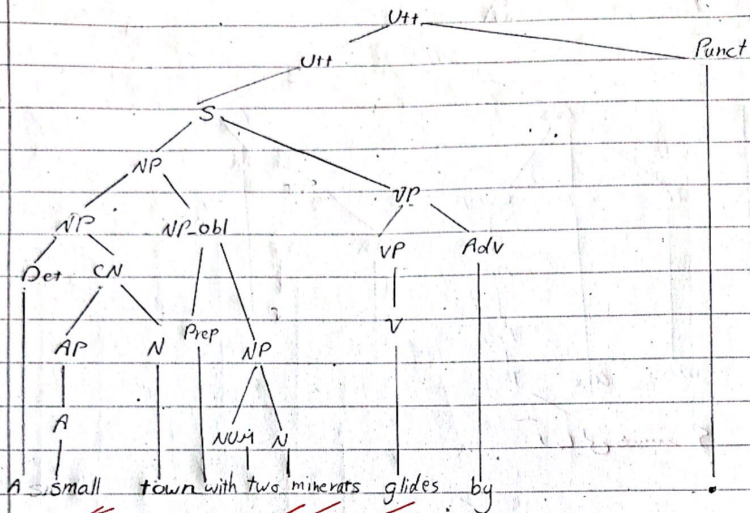 Utt
Utt Punct
S
NP
VP
NP NP-obl
VP Adv
Det CN
Prep V
AP N NP
A
NUM N
A small town with two minerats glides by .